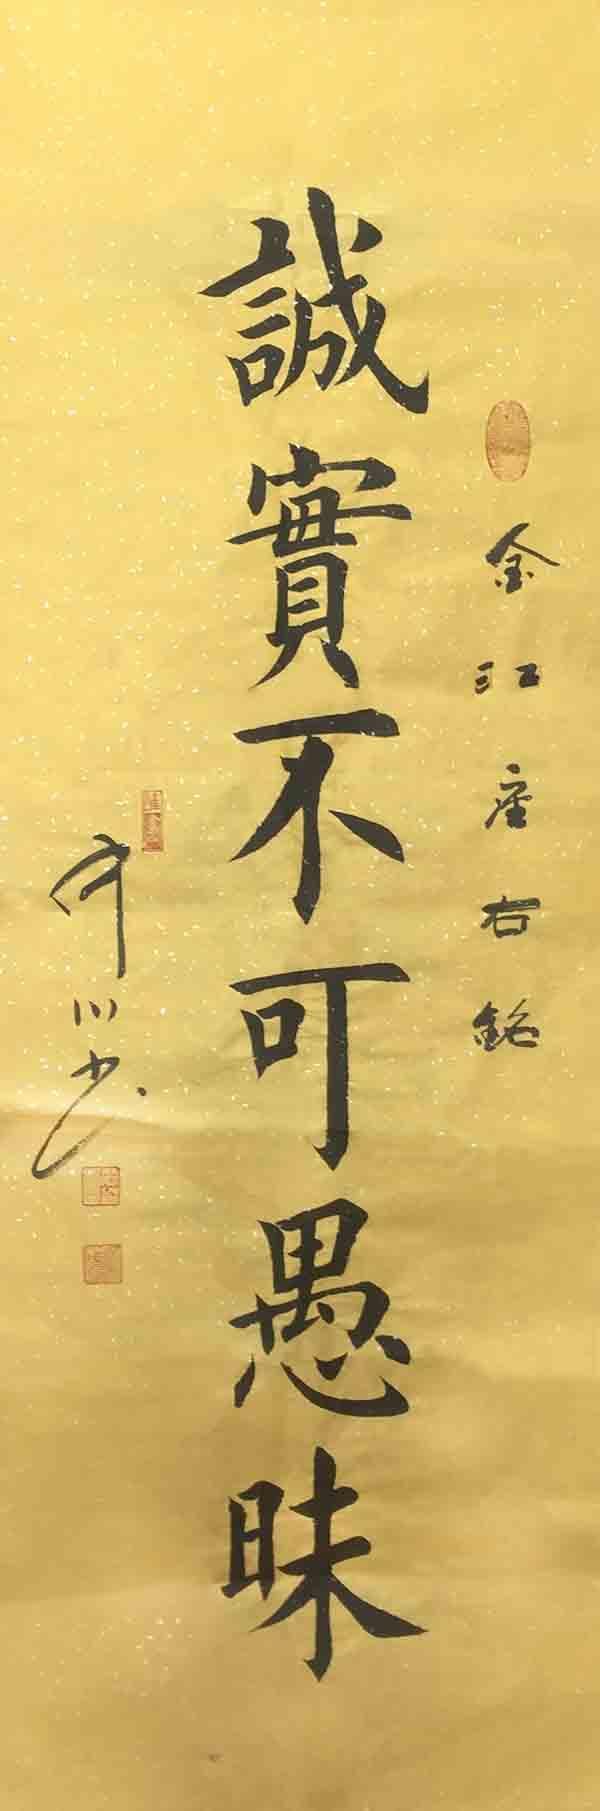 金江座右銘
誠實不可愚昧